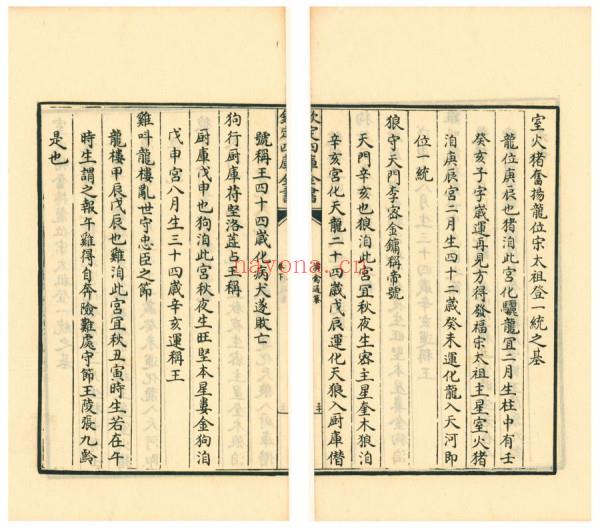 室火猪奮揚龍位宗太祖登一統之基
龍位庚辰也猪洎此宮化驪龍宜二月生柱中有壬
癸亥子字歲運再見方得發福宗太祖主星室火猪
洎庚辰宮二月生四十二歲癸未運化龍入天河即
位一統
狼守天門李容金鏞稱帝號
天門辛亥也狼洎此宮秋夜生容主星奎木狼洎
辛亥宮化天龍二十四歲戊辰運化天狼入厨庫僭
欽定四庫全書
號稱王四十四歲化病犬遂敗亡
狗行厨庫苻堅洛蓝占王稱
厨庫戊申也狗洎此宮秋夜生旺堅本星婁金狗洎
戊申宮八月生三十四歲辛亥運稱王
雞叫龍樓亂世守忠臣之節
龍樓甲辰戊辰也雞洎此宮宜秋丑寅時生若在午
時生謂之報午雞得自奔險難處守節王陵張九齡
是也
nayona.cn